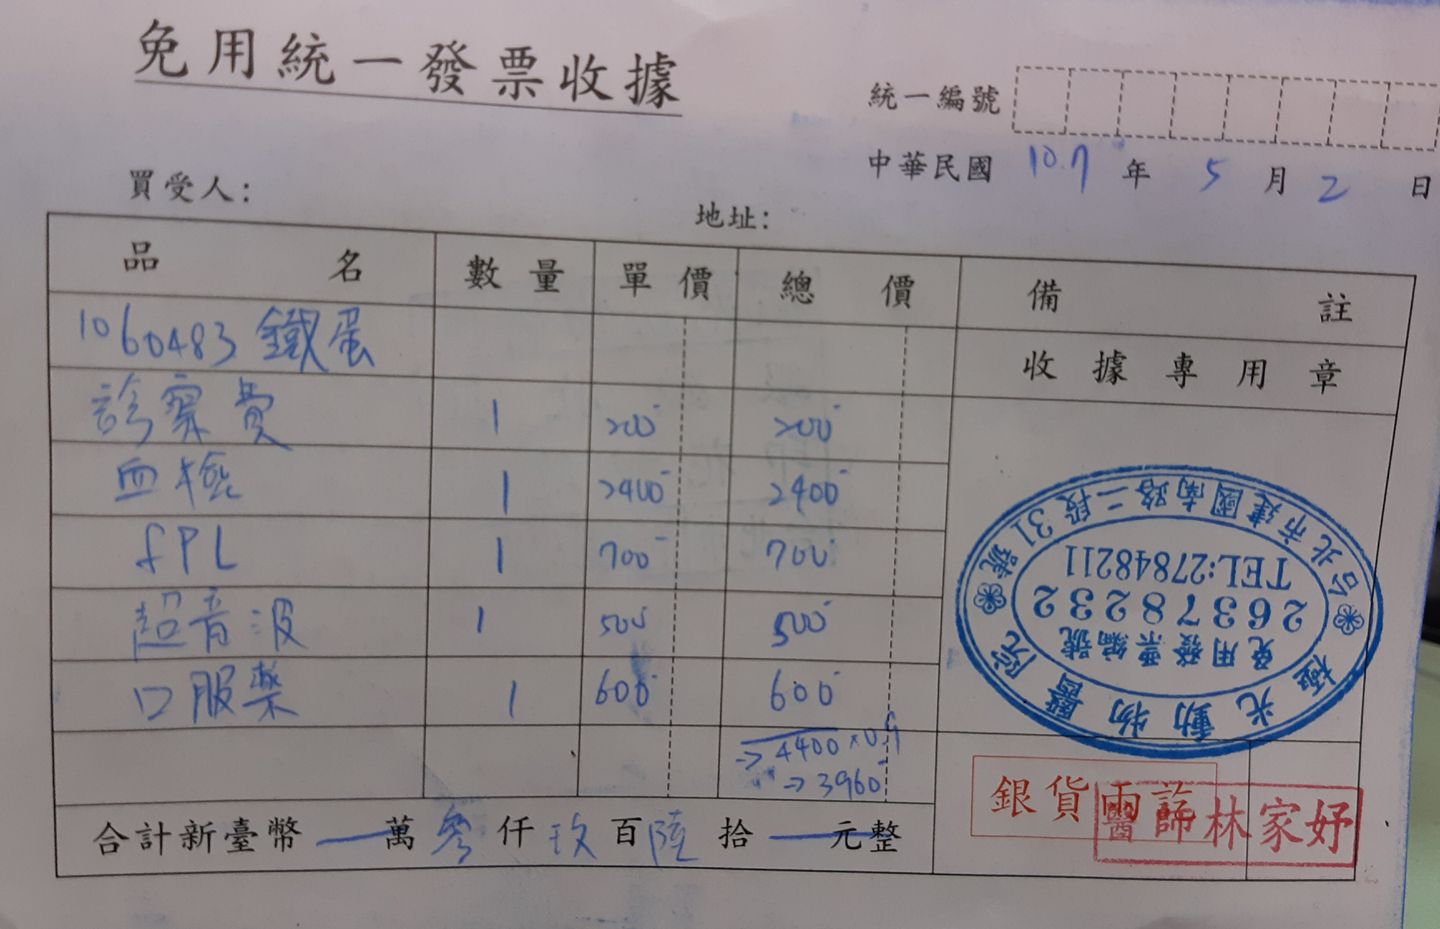 免用統一發票收據
統一編號
中華民國 107年 5月 2日
買受人：
地址：
品名 數量 單價 總價 備註
收據專用章
1060483 鐵蛋
診察費 1 200 200
血檢 1 2400 2400
fPL 1 700 700
超音波 1 500 500
口服藥 1 600 600
→ 4400×0.9
→ 3960
合計新臺幣 — 萬 參 仟 玖 百 陸 拾 — 元整
極光動物醫院
免用發票編號
26378232
TEL:27848211
台北市建國南路二段31號
銀貨兩訖
醫師林家妤